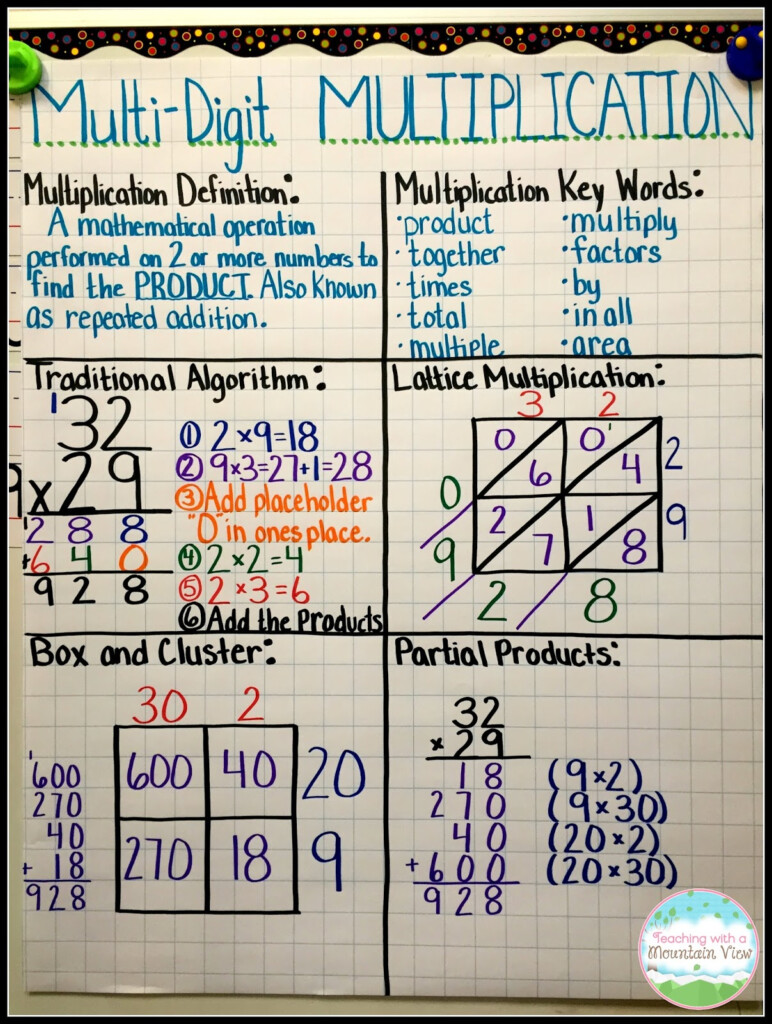 Multi-Digit MULTIPLICATION
Multiplication Definition:
A mathematical operation
performed on 2 or more numbers to
find the PRODUCT. Also Known
as repeated addition.
Multiplication Key Words:
·product ·multiply
·together ·factors
·times ·by
·total ·in all
·multiple ·area
Traditional Algorithm:
1
32
x29
1
288
+640
928
① 2×9=18
② 9×3=27+1=28
③ Add placeholder
"0" in ones place.
④ 2×2=4
⑤ 2×3=6
⑥ Add the Products
Lattice Multiplication:
3 2
0 6 0 1 4 2
0
2 7 1 8 9
9
2 8
Box and Cluster:
30 2
600 40 20
270 18 9
1
600
270
40
+ 18
928
Partial Products:
32
×29
18 (9×2)
270 (9×30)
40 (20×2)
+600 (20×30)
928
Teaching with a
Mountain View